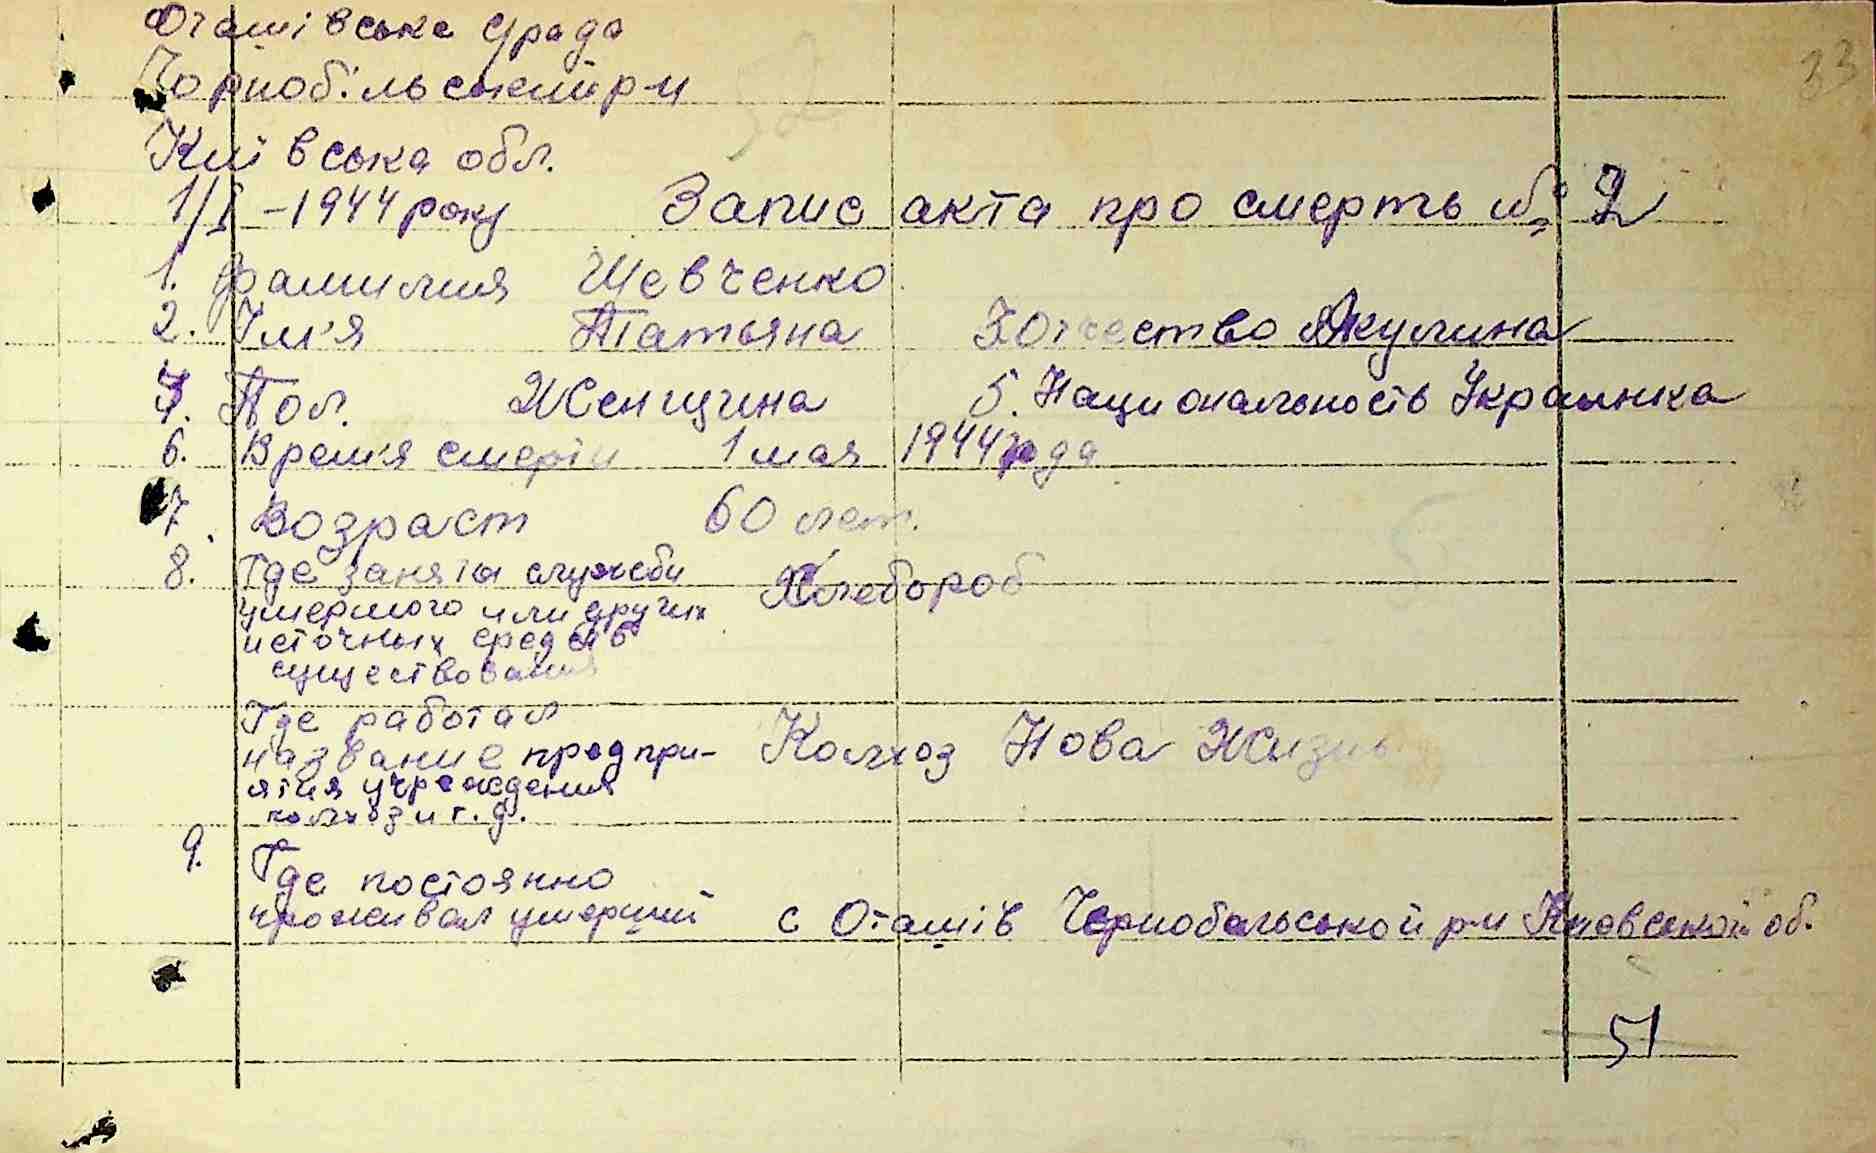 Оташівська с/рада
Чорнобільський р-н
Київська обл.
33
1/I -1944 року Запис акта про смерть № 2
1. Фамилия Шевченко
2. Ім'я Татьяна 3 Отчество Якулина
4. Пол. Женщина 5. Национальность Украинка
6. Время смерти 1 мая 1944 года
7. Возраст 60 лет.
8. Где заняты службы Хлебороб
умершого или других
источных средств
существования
Где работал
название предпри- Колхоз Нова Жизнь
ятия учреждения
колхоз и т. д.
9. Где постоянно
проживал умерший с Оташів Чернобельськой р-н Киевськой об.
51